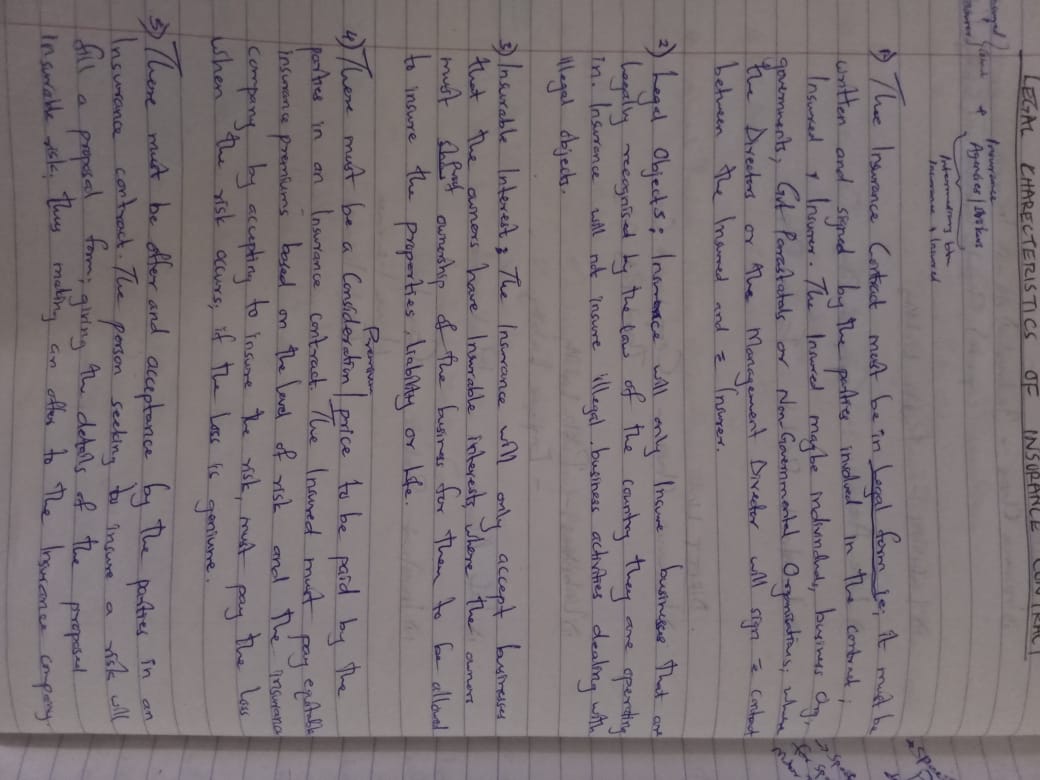 LEGAL CHARECTERISTICS OF INSURANCE CONTRACT
Insurance
Agencies/Brokers
Intermediary btn
Insurance & Insured
1) The Insurance Contract must be in Legal form ie; it must be
written and signed by the parties involved in the contract;
Insured & Insurer. The Insured maybe individual, business Org,
governments, Gvt Parastatals or Non-Governmental Organistions; where
the Directors or the Management Director will sign = contract
between the Insured and = Insurer.
2) Legal Objects; Insurance will only Insure businesses that are
legally recognised by the law of the country they are operating
in. Insurance will not insure illegal business activities dealing with
illegal objects.
3) Insurable Interest; The Insurance will only accept businesses
that the owners have Insurable interests, where the owners
must proof ownership of the business for them to be allowed
to insure the properties, liability or life.
Premium
4) There must be a Consideration/price to be paid by the
parties in an Insurance contract. The Insured must pay equitable
insurance premiums based on the level of risk and the insurance
company by accepting to insure the risk, must pay the loss
when the risk occurs, if the loss is geniune.
5) There must be offer and acceptance by the parties in an
Insurance contract. The person seeking to insure a risk will
fill a proposal form; giving the details of the proposed
insurable risk, thus making an offer to the Insurance company